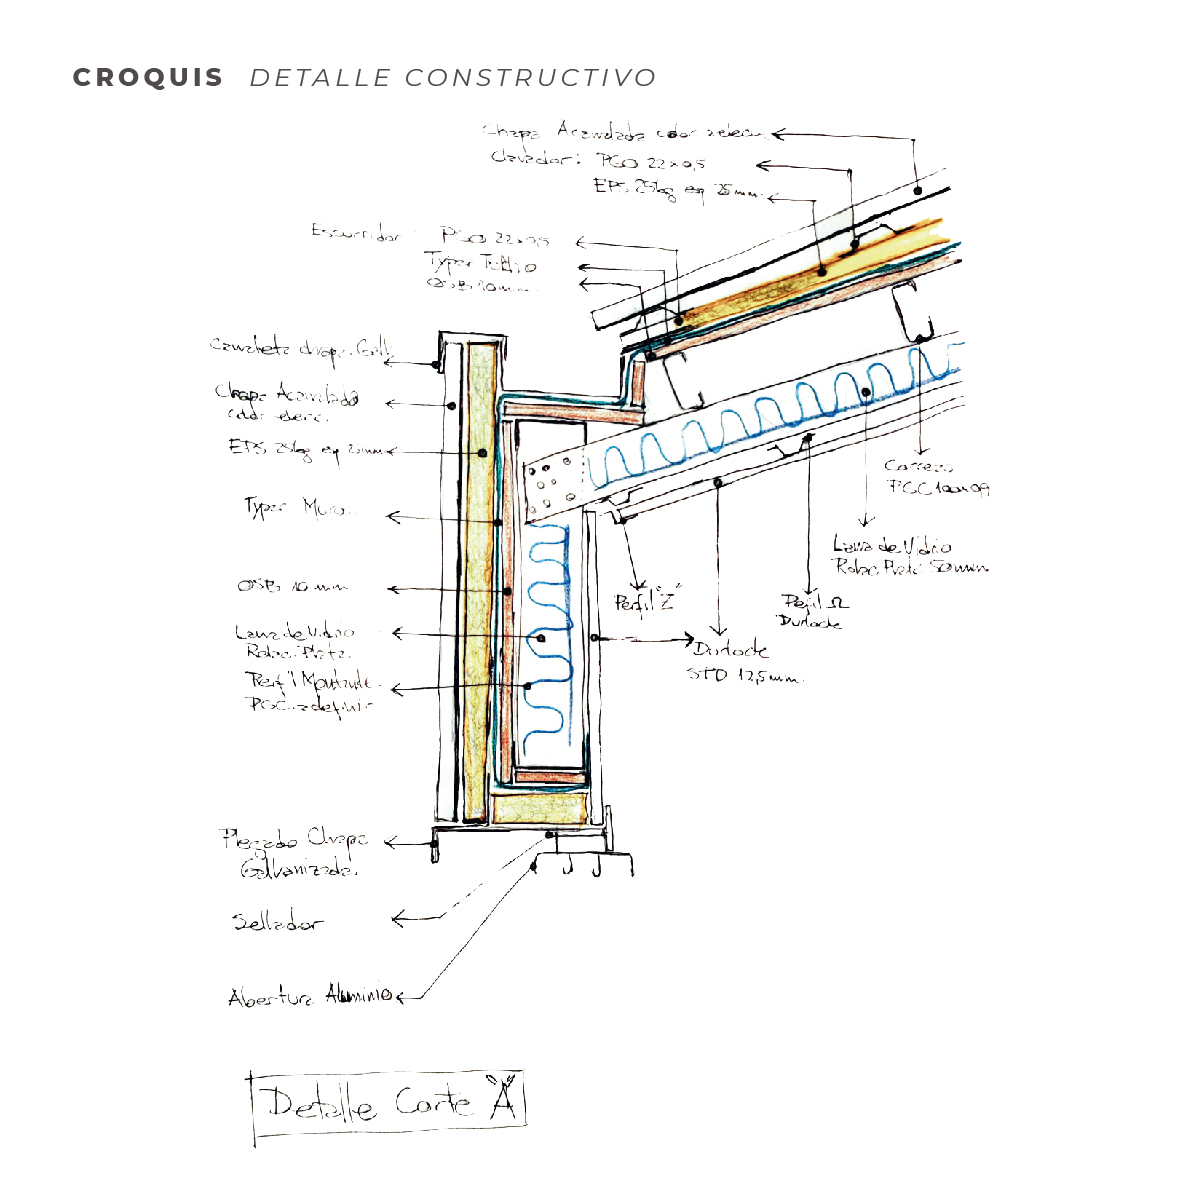 CROQUIS DETALLE CONSTRUCTIVO
Chapa Acanalada color
Clavador: PGO 22x0,5
EPS 25kg eq 25mm.
Escurridor: PGO 22x0,5
Typar Techo
OSB 10mm.
chapa Galv
Chapa Acanalada
color
EPS 25kg eq 25mm
Typar Muro.
OSB 10 mm
Lana de Vidrio
Rolac Plata.
Perfil Montante.
PGC a definir
Plegado Chapa
Galvanizada.
Sellador
Abertura Aluminio
Correa
PGC 100x09
Lana de Vidrio
Rolac Plata 50mm.
Perfil "Z"
Perfil Ω
Durlock
Durlock
STD 12,5mm.
Detalle Corte A